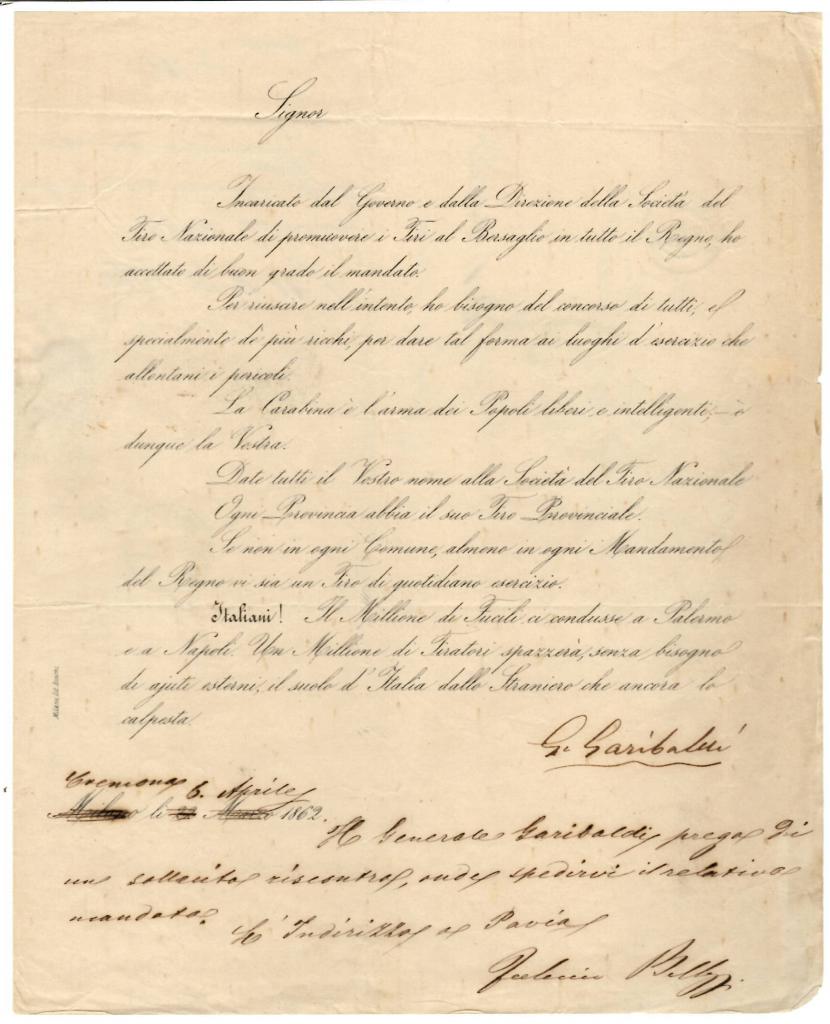 Signor
Incaricato dal Governo e dalla Direzione della Società del
Tiro Nazionale di promuovere i Tiri al Bersaglio in tutto il Regno, ho
accettato di buon grado il mandato.
Per riuscire nell'intento, ho bisogno del concorso di tutti, e
specialmente de' più ricchi, per dare tal forma ai luoghi d'esercizio che
allontani i pericoli.
La Carabina è l'arma dei Popoli liberi e intelligenti, — è
dunque la Vostra.
Date tutti il Vostro nome alla Società del Tiro Nazionale
Ogni Provincia abbia il suo Tiro Provinciale.
Se non in ogni Comune, almeno in ogni Mandamento
del Regno vi sia un Tiro di quotidiano esercizio.
Italiani! Il Millione di Fucili ci condusse a Palermo
e a Napoli. Un Millione di Tiratori spazzerà, senza bisogno
di ajuti esterni, il suolo d'Italia dallo Straniero che ancora lo
calpesta.
G. Garibaldi
Cremona 6. Aprile
Milano li 22 Marzo 1862.
Il Generale Garibaldi prega di
un sollecito riscontro, onde spedirvi il relativo
mandato.
L'Indirizzo a Pavia